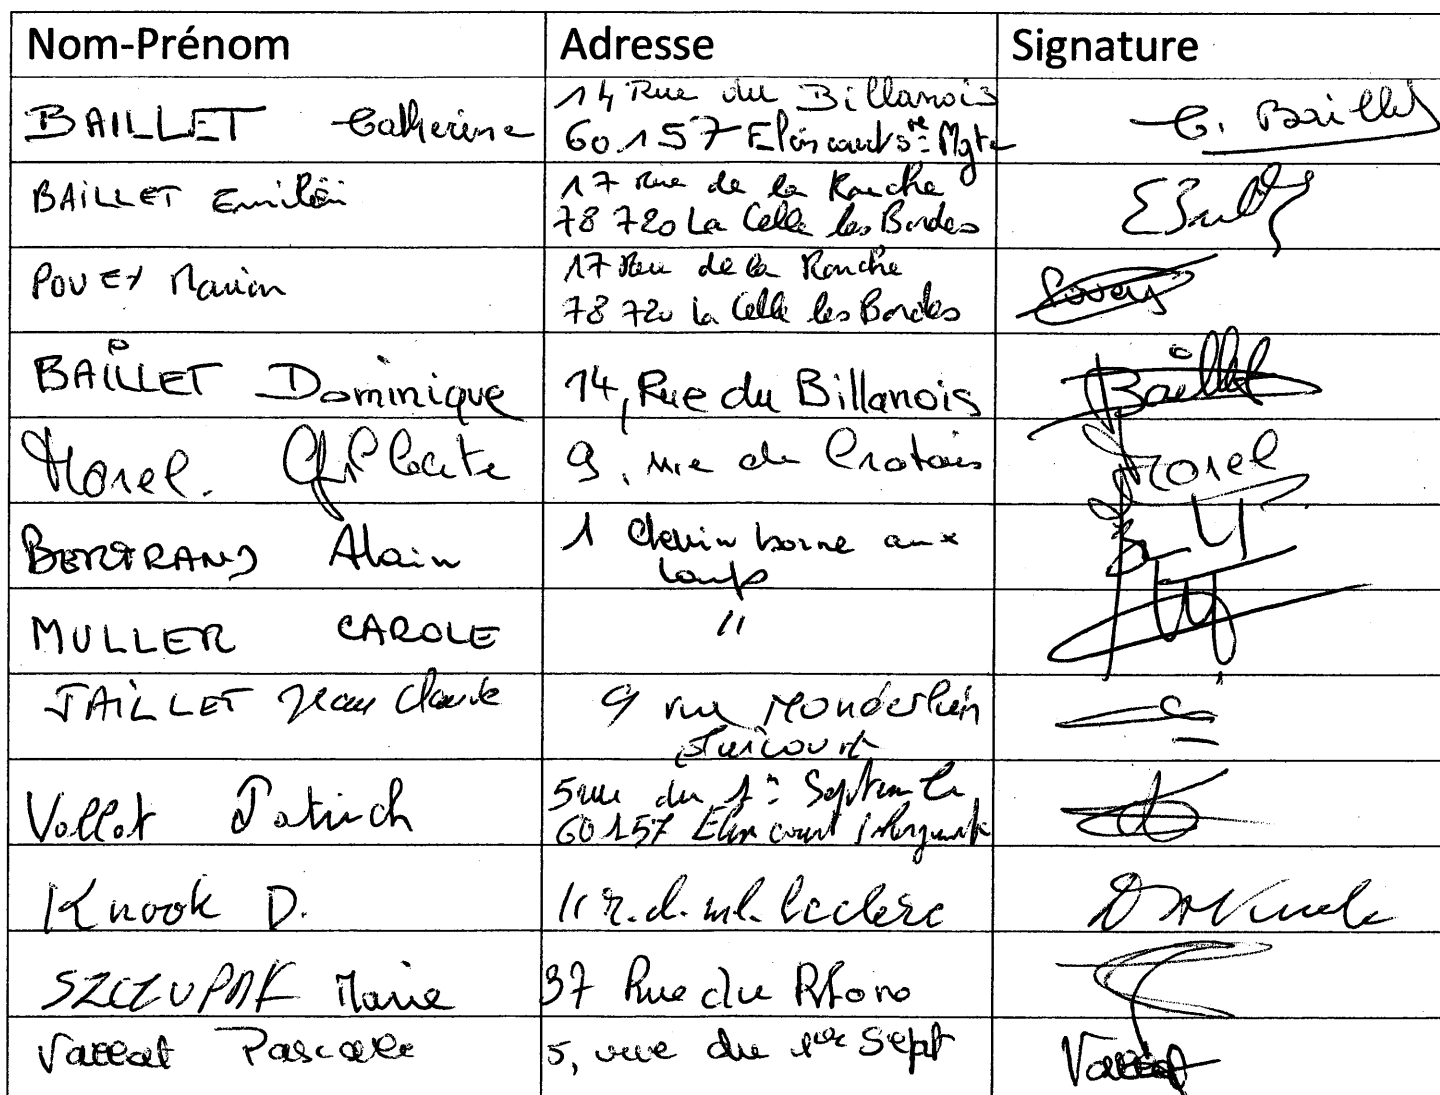 Nom-Prénom Adresse Signature
BAILLET Catherine 14 Rue du Billanois C. Baillet
60157 Elincourt Ste Mgte
BAILLET Emilien 17 rue de la Ronche
78720 La Celle les Bordes
POVEY Marion 17 Rue de la Ronche Povey
78720 La Celle les Bordes
BAILLET Dominique 14, Rue du Billanois Baillet
Morel. 9, rue de Morel
BERTRAND Alain 1 Chemin borne aux
loups
MULLER CAROLE "
JAILLET Jean Claude 9 rue
Vallat Patrick 5 rue du 1er Septembre
60157 Elincourt
Knook D. 11 r. d. ml. leclerc
SZCZUPAK Marie 37 Rue du
Vallat Pascale 5, rue du 1er Sept Vallat